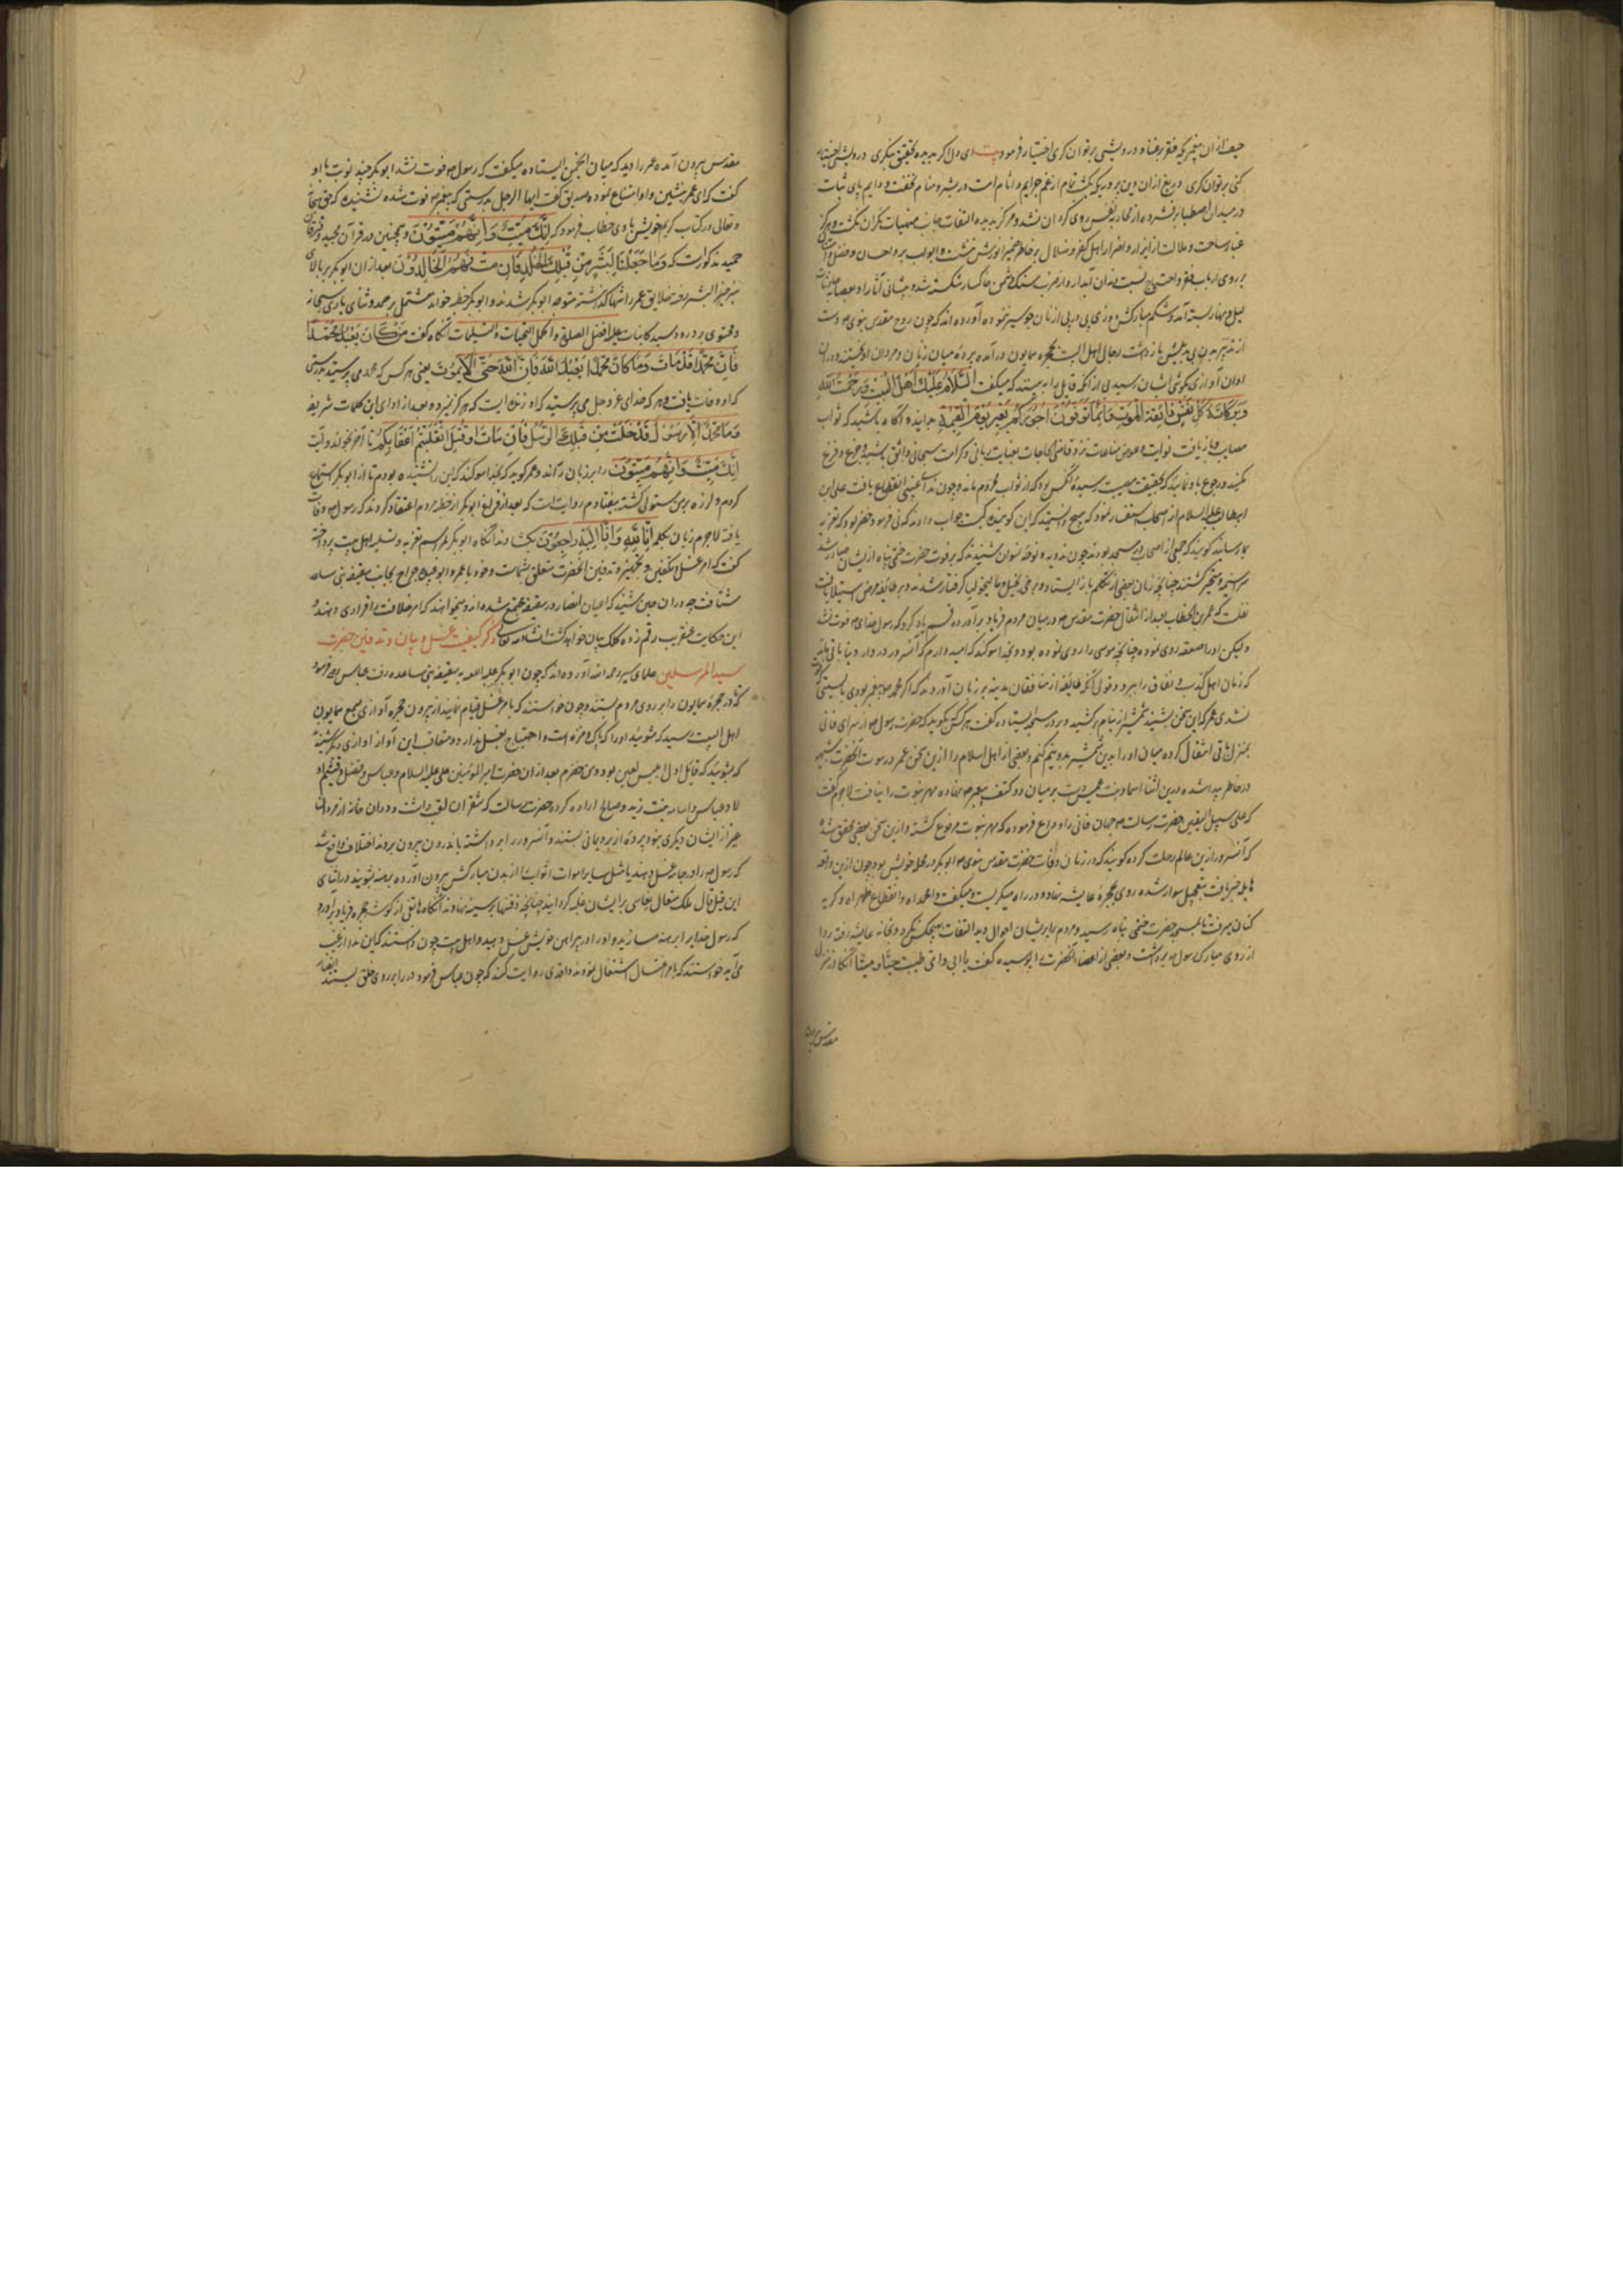 حیف ازان پیغمبری که فقر بر غنا و درویشی بر توانکری اختیار فرمود بیت ای دل اکر بدیده تحقیق بنکری درویشی اختیار
کنی بر توانکری و دریغ ازان دین پروری که یکشب تمام از غم جرایم و اثام امت در بستر منام نخفت و دایم پای ثبات
در میدان اصطبار فشرده از محاربه نفس روی کردان نشد و هرکز بدیده التفات بجانب منهیات نکران نکشت و هرکز
غبار سآمت و ملالت از ایذا و اضرار اهل کفر و ضلال بر خاطر ضمیر انورش ننشست و ابواب بر و احسان و فضل
بر روی ارباب فقر و احتیاج نبست دندان آبدار او از ضرب سنک دشمن خاکسار شکسته شد و پیشانی
لیل و نهار بسته آمد و شکم مبارکش دو روز پی در پی از نان جو سیر نبوده آورده اند که چون روح مقدس نبوی ص دست
از تدبیر بدن باز داشت رجال اهل البیت بحجره همایون درآمده پرده میان زنان و مردان آویختند و دران
اوان آوازی بکوش ایشان رسید بی ازانکه قایل را به بینند که میکفت السَّلامُ عَلَیْکُ اَهْلَ الْبَیْتِ وَرَحْمَتُ اللّٰهِ
وَبَرَکَاتُهُ کُلُّ نَفْسٍ ذَائِقَةُ الْمَوْتِ وَاِنَّمَا تُوَفَّوْنَ اُجُورَکُمْ یَوْمَ الْقِیٰمَةِ بدانید و آکاه باشید که ثواب
کنید و رجوع باو نمایید که بحقیقت مصیبت رسیده آنکس بود که از ثواب محروم ماند و چون ندای غیبی انقطاع یافت علی ابن
ابیطالب علیه السلام از اصحاب استفسار نمود که هیچ دانستید که این کوینده کیست جواب دادند که نی فرمود خضر بود که تعزیه
نقلست که عمر بن الخطاب بعد از انتقال حضرت مقدس ص در میان مردم فریاد برآورده قسم یاد کرد که رسول خدای ص فوت نشد
ولیکن او را صعقه روی نموده چنانچه موسی را روی نموده بود و بخدا سوکند که امید دارم که آنسرور در دار دنیا باقی ماند
که زبان اهل کذب و نفاق را ببرد و قولی آنکه طائفه از منافقان مدینه بر زبان آوردند که اکر محمد ص پیغمبر بودی بایستی
نشدی عمر که این سخن بشنید شمشیر از نیام برکشید و بر در مسجد ایستاده کفت هر کس بکوید که حضرت رسول ص از سرای فانی
بمنزل باقی انتقال کرده میان او را بدین شمشیر بدو نیم کنم و بعضی از اهل اسلام را ازین سخن عمر در موت آنحضرت شبهه
در خاطر پیدا شده درین اثنا اسماء بنت عمیس دست بر میان دو کتف پیغمبر ص نهاده مهر نبوت را نیافت لاجرم کفت
که علی سبیل الیقین حضرت رسالت ص جهان فانی را وداع فرموده که مهر نبوت مرفوع کشته و ازین سخن بعضی را محقق شد
که آنسرور ازین عالم رحلت کرده کویند که در زمان وفات حضرت مقدس نبوی ص ابوبکر در محله خویش بود چون ازین واقعه
هایله خبر یافت بتعجیل سوار شده روی بحجره عایشه نهاده و در راه میکریست و میکفت وا محمداه وا انقطاع ظهراه و کریه
کنان میرفت تا بمسجد حضرت ختمی پناه رسید و مردم را پریشان احوال دید التفات بهیچکس نکرد و بخانه عایشه رفته ردا
از روی مبارک رسول ص برداشت و بعضی از اعضای آنحضرت را بوسیده کفت بابی و امی طبت حیّاً و میتّاً آنکاه از منزل
مقدس بیرون
مقدس بیرون آمده عمر را دید که میان انجمن ایستاده میکفت که رسول ص فوت نشد ابوبکر چند نوبت با او
کفت که ای عمر بنشین و او امتناع نموده صدیق کفت ایها الرجل بدرستی که پیغمبر ص فوت شده نشنیده که حق سبحانه
و تعالی در کتاب کریم خویش با وی خطاب فرمود که اِنَّکَ مَیِّتٌ وَاِنَّهُمْ مَیِّتُوْنَ و همچنین در قرآن مجید و فرقان
حمید مذکورست که وَمَا جَعَلْنَا لِبَشَرٍ مِنْ قَبْلِکَ الْخُلْدَ اَفَاِنْ مِتَّ فَهُمُ الْخَالِدُوْنَ بعد ازان ابوبکر بر بالای
منبر خیر البشر رفته خلایق عمر را تنها کذاشته متوجه ابوبکر شدند و ابوبکر خطبه خواند مشتمل بر حمد و ثنای باری سبحانه
و محتوی بر درود سید کاینات علیه افضل الصلوة و اکمل التحیات و التسلیمات آنکاه کفت مَنْ کَانَ یَعْبُدُ مُحَمَّداً
فَاِنَّ مُحَمَّداً قَدْ مَاتَ وَمَنْ کَانَ یَعْبُدُ اللّٰهَ فَاِنَّ اللّٰهَ حَیٌّ لَا یَمُوْتُ یعنی هر کس که محمد می پرستید بدرستی
که او وفات یافت و هر که خدای عز و جل می پرستید که او زنده ایست که هرکز نمیرد و بعد از ادای این کلمات شریفه
وَمَا مُحَمَّدٌ اِلَّا رَسُوْلٌ قَدْ خَلَتْ مِنْ قَبْلِهِ الرُّسُلُ اَفَاِنْ مَاتَ اَوْ قُتِلَ انْقَلَبْتُمْ عَلٰی اَعْقَابِکُمْ تا آخر بخواند و آیت
اِنَّکَ مَیِّتٌ وَاِنَّهُمْ مَیِّتُوْنَ را بر زبان راند و عمر کوید که بخدا سوکند که این را نشنیده بودم تا از ابوبکر استماع
کردم و لرزه بر من مستولی کشته بیفتادم روایت است که بعد از فراغ ابوبکر از خطبه مردم اعتقاد کردند که رسول ص وفات
یافته لاجرم زبان بکلمه اِنَّا لِلّٰهِ وَاِنَّا اِلَیْهِ رَاجِعُوْنَ بکشادند آنکاه ابوبکر بمراسم تعزیه و تسلیه اهل بیت پرداخته
کفت که امر غسل و تکفین و تجهیز و تدفین آنحضرت متعلق بشماست و خود با عمر و ابو عبیده جراح بجانب سقیفه بنی ساعده
شتافت چه دران حین شنید که اعیان انصار در سقیفه مجتمع شده اند و میخواهند که امر خلافت را قراری دهند و
این حکایت عنقریب رقم زده کلک بیان خواهد کشت انشاء الله تعالی ذکر کیفیت غسل و بیان و تدفین حضرت
سید المرسلین علمای سیر رحمه الله آورده اند که چون ابوبکر علیه به سقیفه بنی ساعده رفت عباس رض فرمود
تا در حجره همایون را بر روی مردم بستند و چون خواستند که بامر غسل قیام نمایند از بیرون حجره آوازی بسمع همایون
اهل البیت رسید که مشویید او را که پاک و منزه است و احتیاج بغسل ندارد و متعاقب این آواز آوازی دیکر شنیدند
که بشویید که قایل اول ابلیس لعین بود و من خضرم بعد ازان حضرت امیر المؤمنین علی علیه السلام و عباس و فضل و قثم
اولاد عباس و اسامه بن زید و صالح آزاد کرده حضرت رسالت که شقران لقب داشت و دران خانه از مردان
غیر از ایشان دیکری نبود پرده از برد یمانی بستند و آنسرور را برداشته باندرون بیرون بردند اختلاف واقع شد
که رسول ص را در جامه غسل دهند یا مثل سایر اموات اثواب از بدن مبارکش بیرون آورده برهنه بشویند در اثنای
این قیل و قال ملک متعال نعاسی بر ایشان غلبه کردانید چنانچه ذقنها بر سینه نهادند آنکاه هاتفی از کوشه حجره فریاد برآورد
که رسول خدا را برهنه مسازید و او را در پیراهن خویش غسل دهید و اهل بیت چون دانستند که این ندا از غیب
می آید خواستند که بامر غسل اشتغال نمودند واقدی روایت کند که چون عباس فرمود در را بر روی خلق بستند انصار